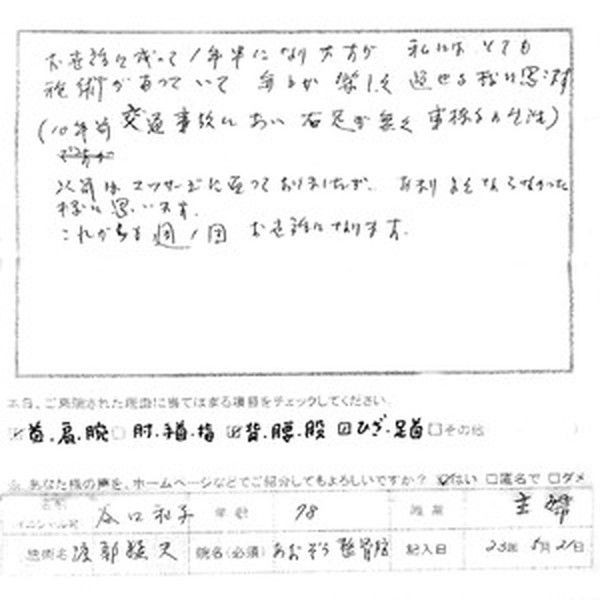 お世話に成って1年半になりますが 私にはとても
施術があっていて 毎日が楽しく過せる様に思います
(10年前 交通事故にあい 右足が無く 車椅子の生活)
以前はマッサージに通っておりましたが、あまりよくならなかった
様に思います。
これからも週1回 お世話になります。
本日、ご来院された理由に当てはまる項目をチェックしてください。
☑首・肩・腕 □肘・手首・指 ☑背・腰・股 ☑ひざ・足首 □その他 )
※あなた様の声を、ホームページなどでご紹介してもよろしいですか? ☑はい □匿名で □ダメ
名前 イニシャル可 谷口和子 年齢 78 職業 主婦
施術名 院名(必須) あおぞら整骨院 記入日 23年 5月21日